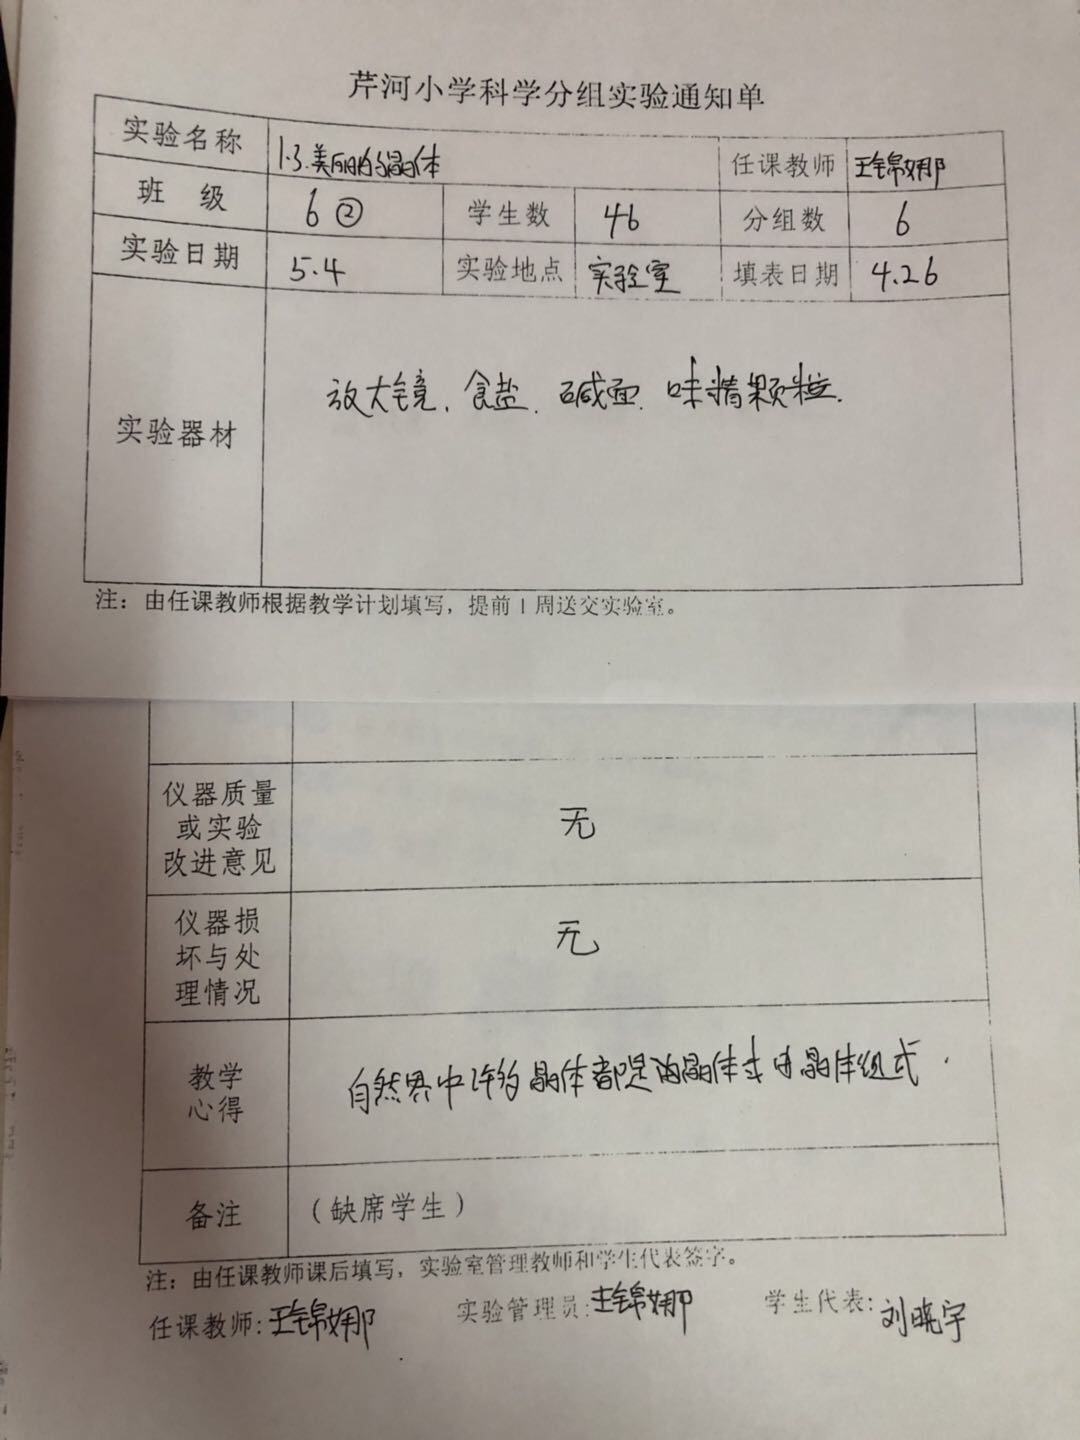 芹河小学科学分组实验通知单
实验名称 1.3.美丽的晶体 任课教师 王锦娜
班 级 6② 学生数 46 分组数 6
实验日期 5.4 实验地点 实验室 填表日期 4.26
实验器材 放大镜、食盐、碱面、味精颗粒.
注：由任课教师根据教学计划填写，提前1周送交实验室。
仪器质量
或实验
改进意见
无
仪器损
坏与处
理情况
无
教学
心得
自然界中许多晶体都是由晶体或由晶体组成.
备注 （缺席学生）
注：由任课教师课后填写，实验室管理教师和学生代表签字。
任课教师:王锦娜 实验管理员:王锦娜 学生代表:刘晓宇